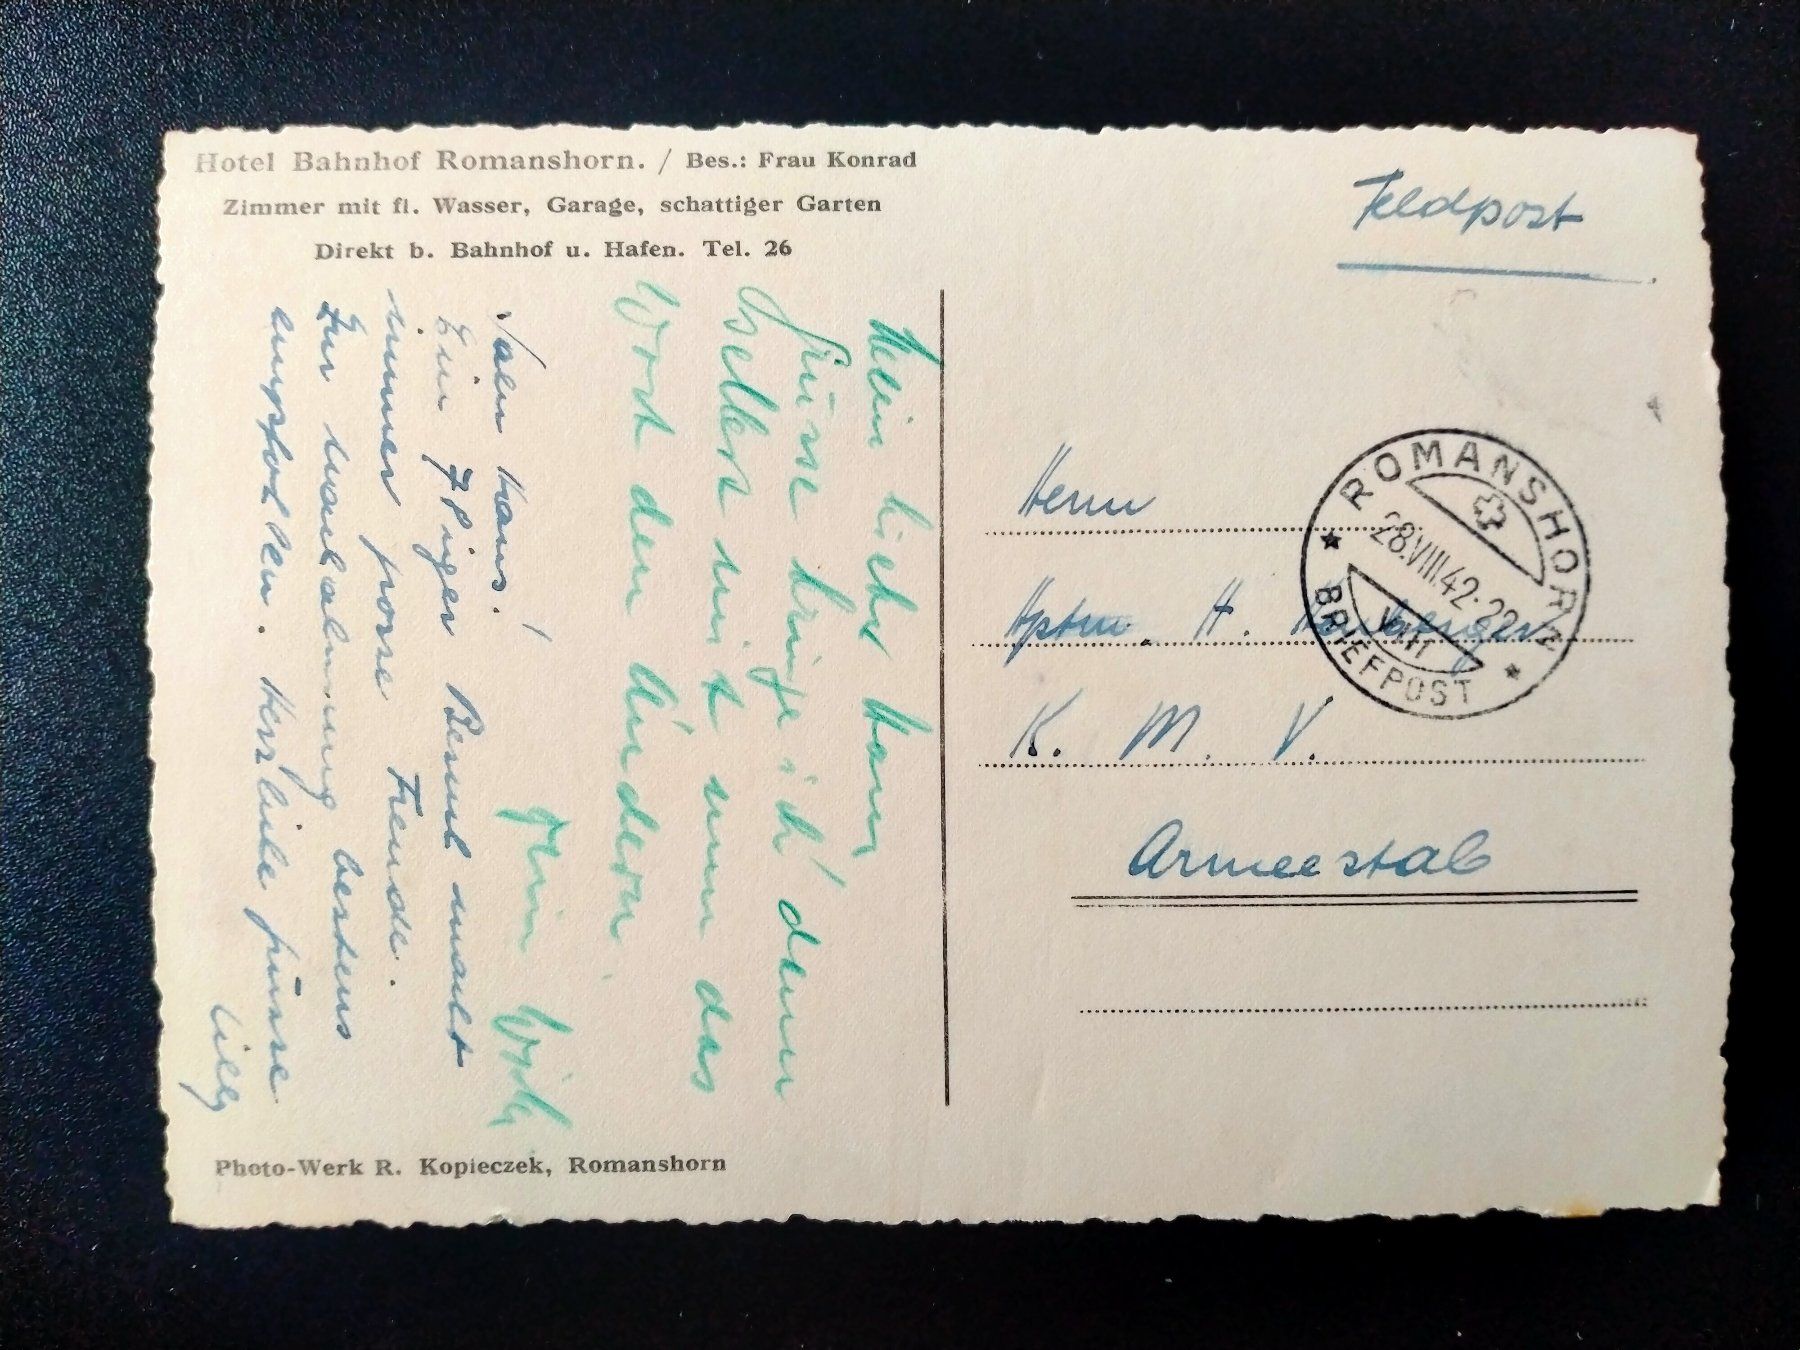 Hotel Bahnhof Romanshorn. / Bes.: Frau Konrad
Zimmer mit fl. Wasser, Garage, schattiger Garten
Direkt b. Bahnhof u. Hafen. Tel. 26
Mein lieber Hans
Grüsse bringe ich denn
selbst mit nun das
Wort den Andern
Dein Willy
Salü Hans!
Ein 78iger Besuch macht
immer grosse Freude.
Zur Nachahmung bestens
empfohlen. Herzliche Grüsse
Lilly
Photo-Werk R. Kopieczek, Romanshorn
Feldpost
Herrn
Hptm. H.
K. M. V.
Armeestab
ROMANSHORN
28.VIII.42.22
VIII
BRIEFPOST